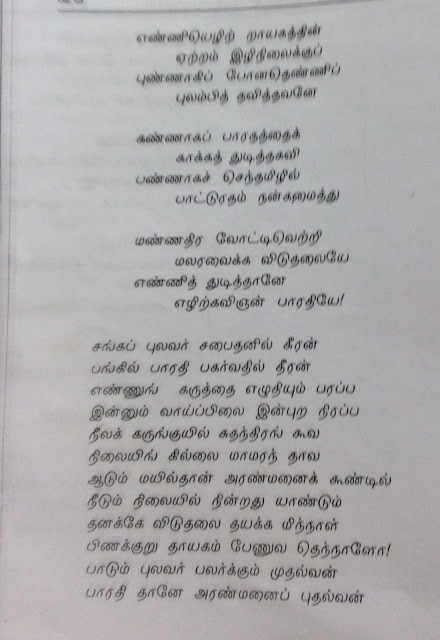 எண்ணியெழிற் றாயகத்தின்
ஏற்றம் இழிநிலைக்குப்
புண்ணாகிப் போனதெண்ணிப்
புலம்பித் தவித்தவனே
கண்ணாகப் பாரதத்தைக்
காக்கத் துடித்தகவி
பண்ணாகச் செந்தமிழில்
பாட்டுரதம் நன்கமைத்து
மண்ணதிர வோட்டிவெற்றி
மலரவைக்க விடுதலையே
எண்ணித் துடித்தானே
எழிற்கவிஞன் பாரதியே!
சங்கப் புலவர் சபைதனில் கீரன்
பங்கில் பாரதி பகர்வதில் தீரன்
எண்ணுங் கருத்தை எழுதியும் பரப்ப
இன்னும் வாய்ப்பிலை இன்புற நிரப்ப
நீலக் கருங்குயில் சுதந்திரங் கூவ
நிலையிங் கில்லை மாமரந் தாவ
ஆடும் மயில்தான் அரண்மனைக் கூண்டில்
நீடும் நிலையில் நின்றது யாண்டும்
தனக்கே விடுதலை தயக்க மிந்நாள்
பிணக்குறு தாயகம் பேணுவ தெந்நாளோ!
பாடும் புலவர் பலர்க்கும் முதல்வன்
பாரதி தானே அரண்மனைப் புதல்வன்